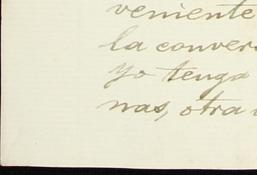 veniente
la conver
yo tengo
nas, otra